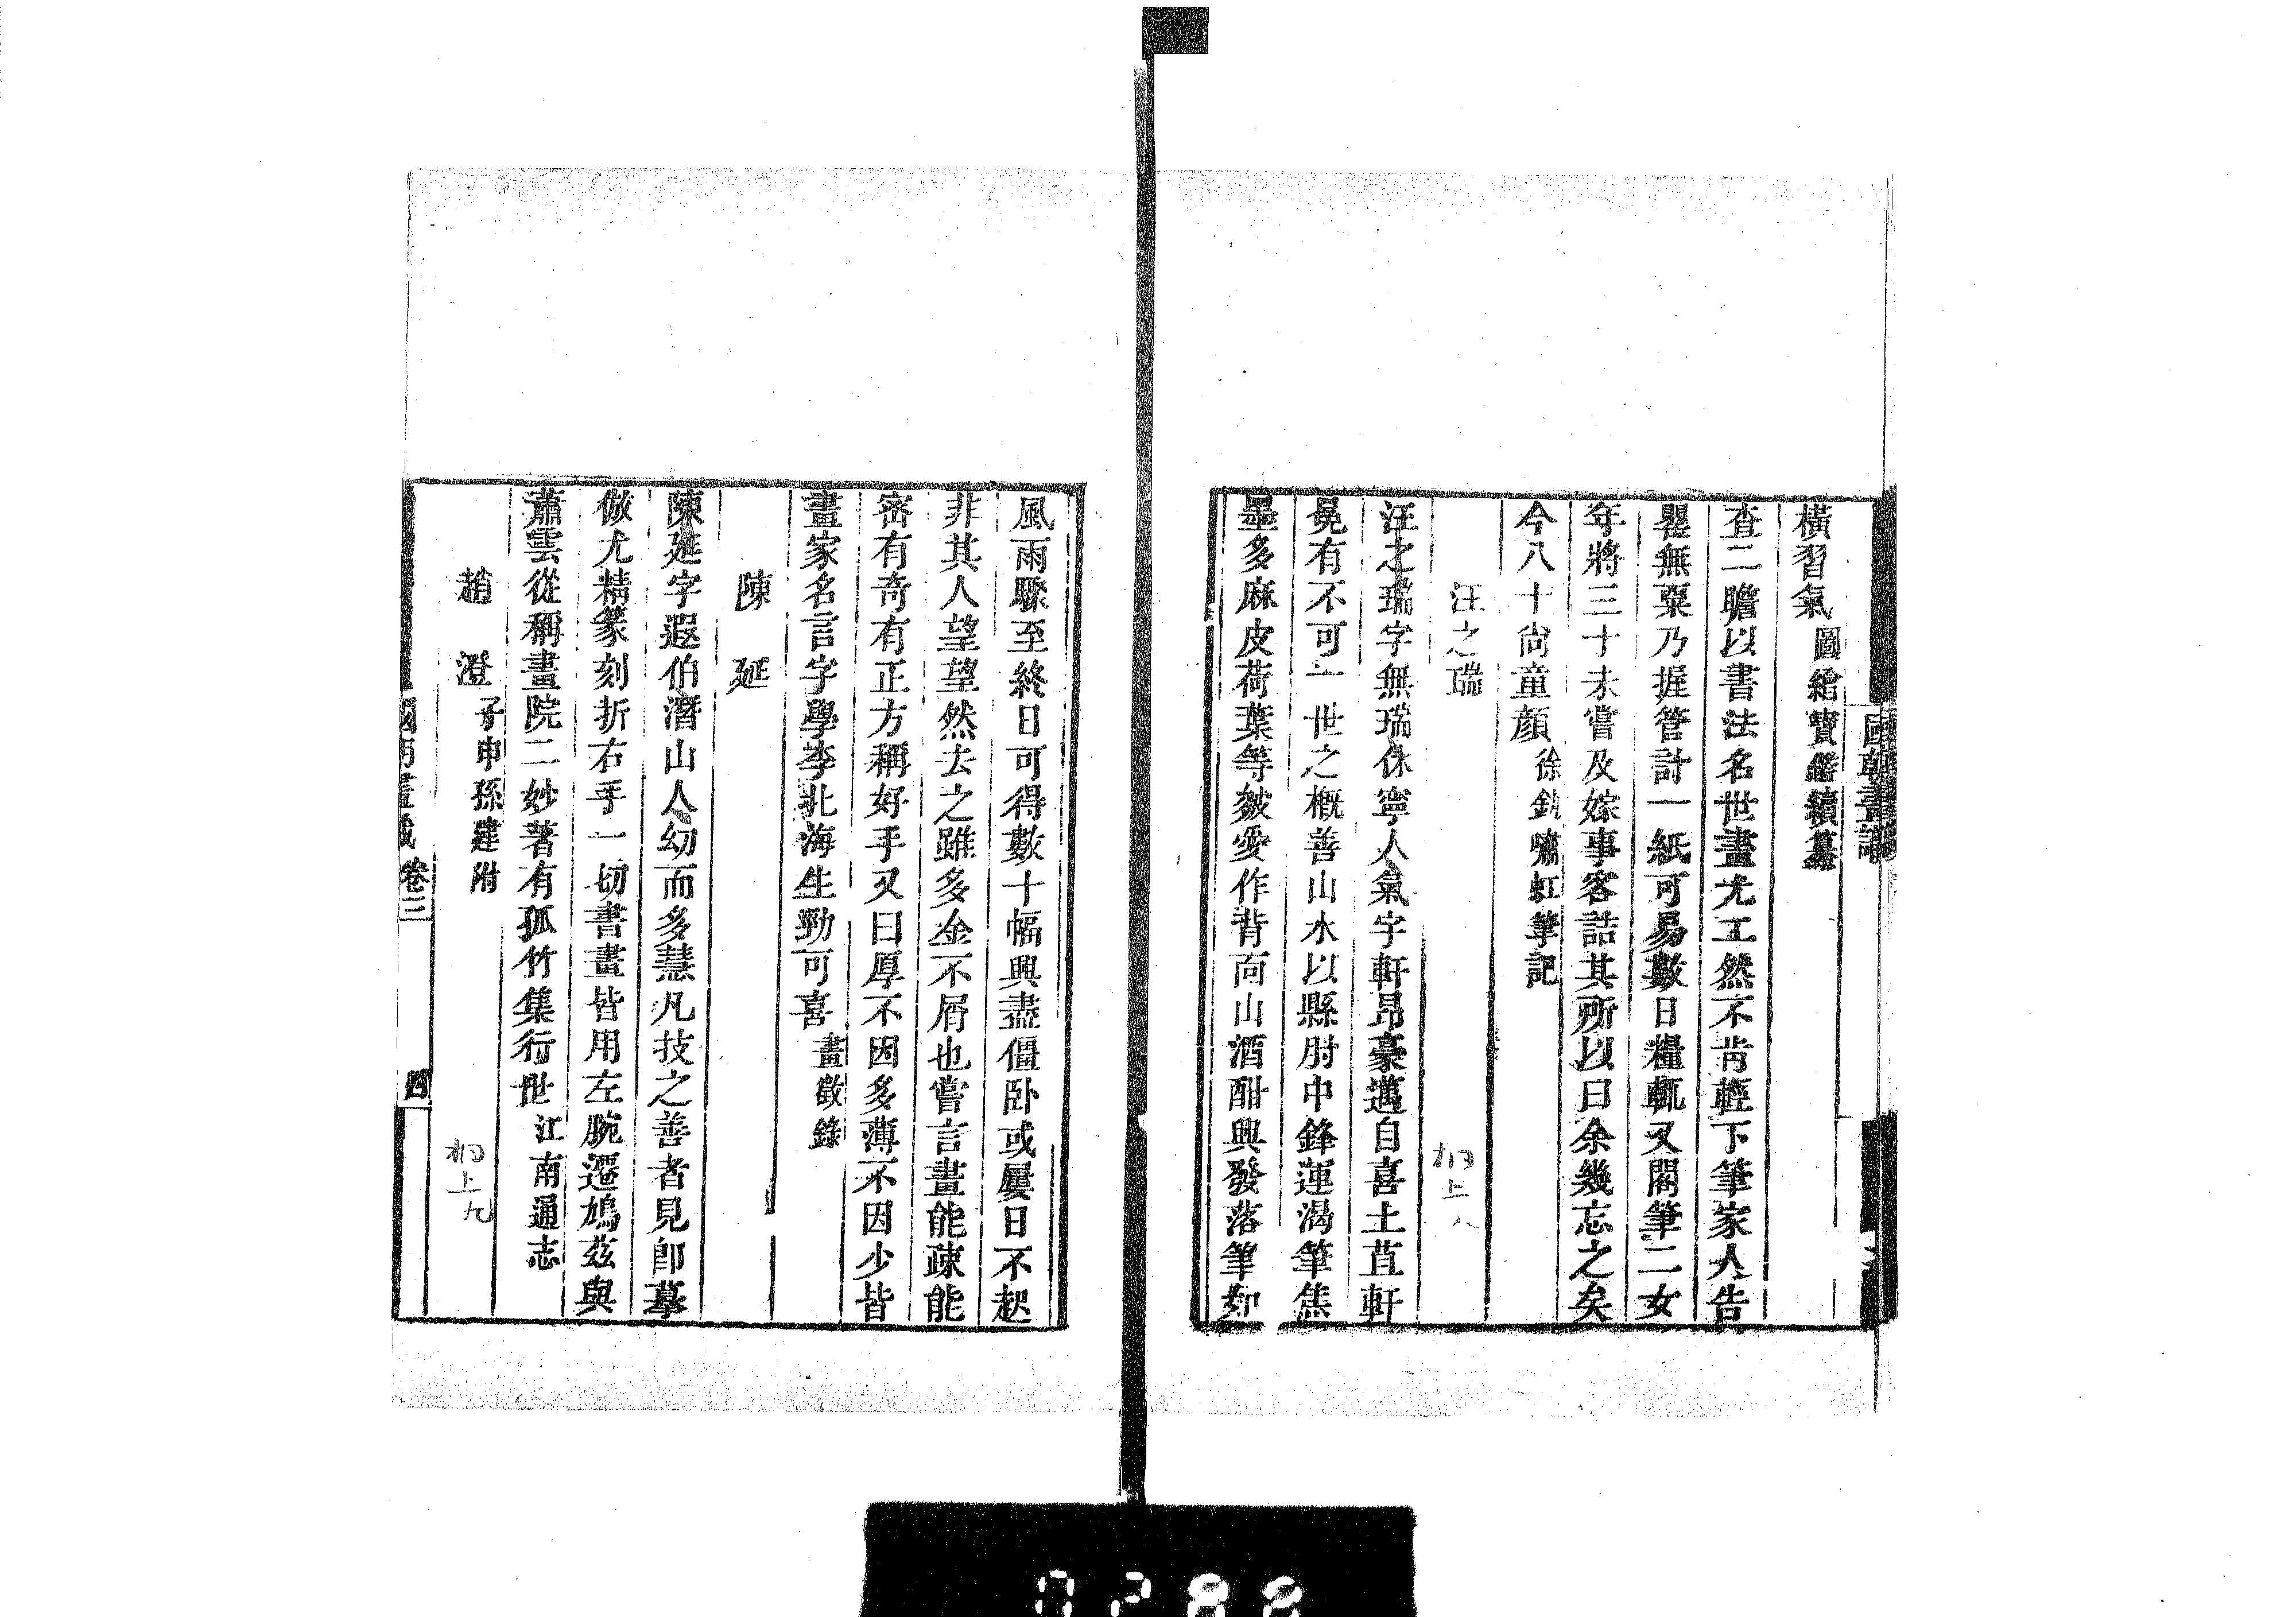 國朝畫識
橫習氣 圖繪寶鑑續纂
查二瞻以書法名世畫尤工然不肯輕下筆家人告
罌無粟乃握管計一紙可易數日糧輒又閣筆二女
年將三十未嘗及嫁事客詰其所以曰余幾忘之矣
今八十尚童顏 徐釚嘯虹筆記
汪之瑞
汪之瑞字無瑞休寧人氣宇軒昂豪邁自喜土苴軒
冕有不可一世之概善山水以縣肘中鋒運渴筆焦
墨多麻皮荷葉等皴愛作背面山酒酣興發落筆如
風雨驟至終日可得數十幅興盡僵臥或屢日不起
非其人望望然去之雖多金不屑也嘗言畫能疎能
密有奇有正方稱好手又曰厚不因多薄不因少皆
畫家名言字學李北海生勁可喜 畫徵錄
陳延
陳延字遐伯潛山人幼而多慧凡技之善者見即摹
倣尤精篆刻折右手一切書畫皆用左腕遷鳩茲與
蕭雲從稱畫院二妙著有孤竹集行世 江南通志
趙澄 子申孫建附
國朝畫識 卷三 四
0288